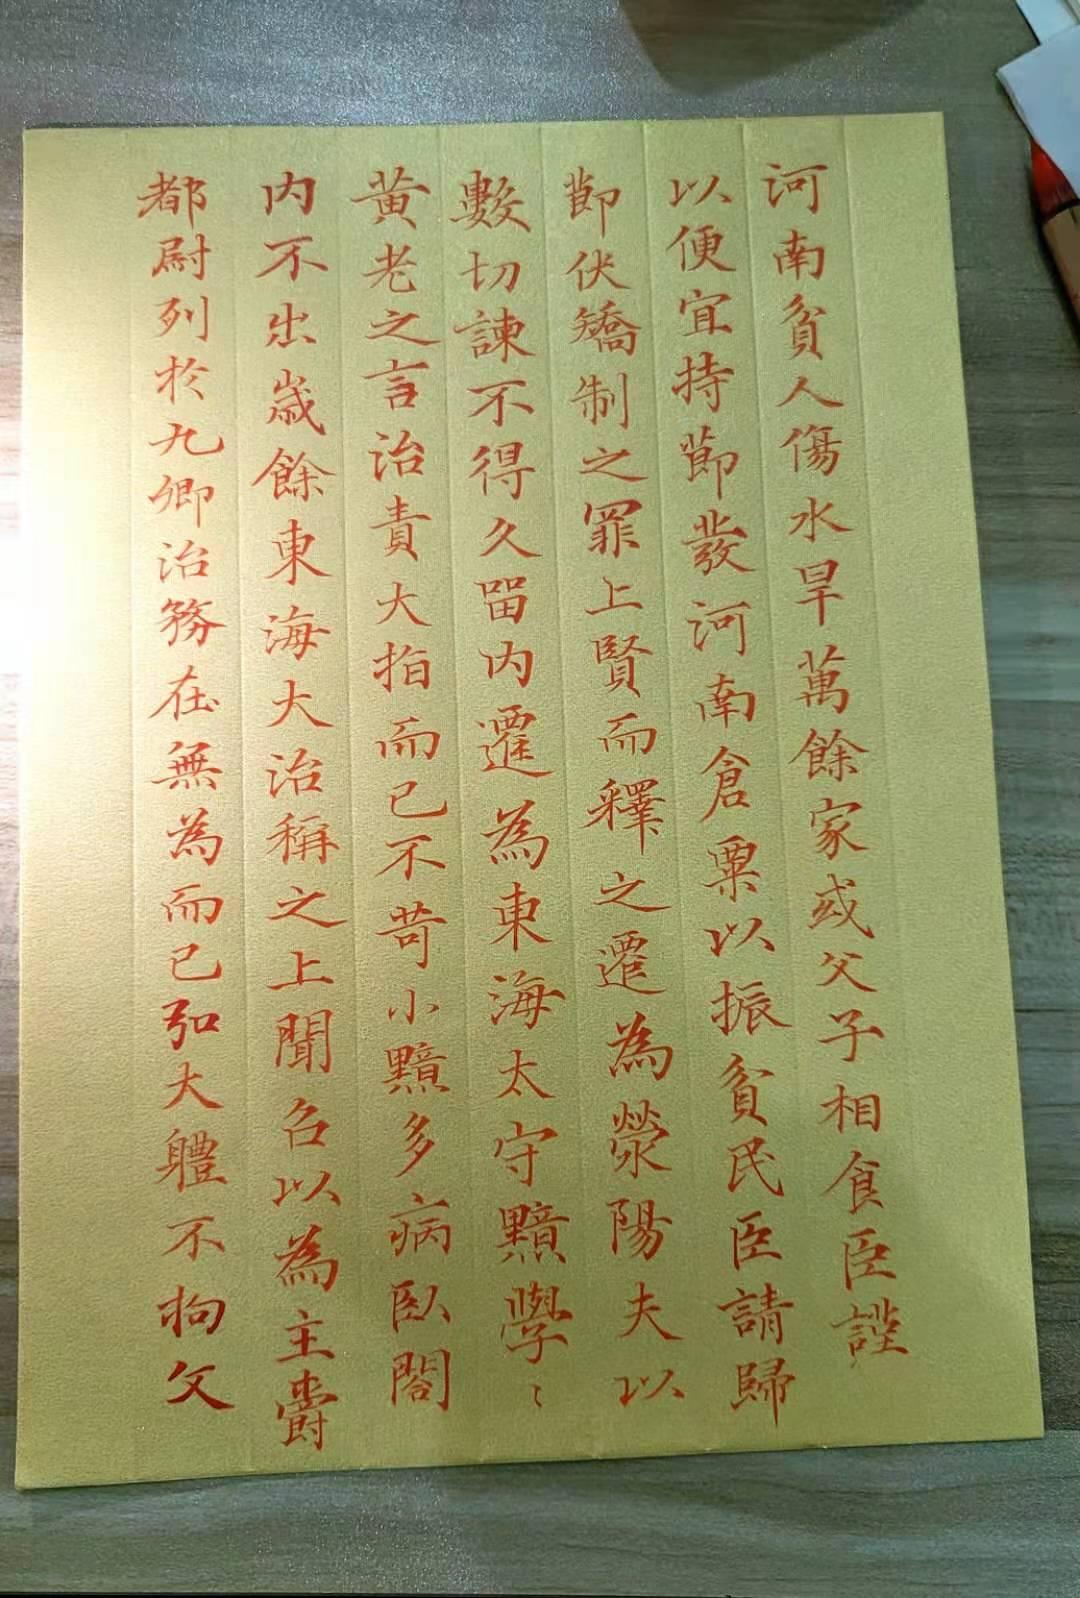 河南貧人傷水旱萬餘家或父子相食臣謹
以便宜持節發河南倉粟以振貧民臣請歸
節伏矯制之罪上賢而釋之遷為滎陽夫以
數切諫不得久留內遷為東海太守黯學〻
黃老之言治責大指而已不苛小黯多病臥閤
內不出歲餘東海大治稱之上聞召以為主爵
都尉列於九卿治務在無為而已弘大體不拘文